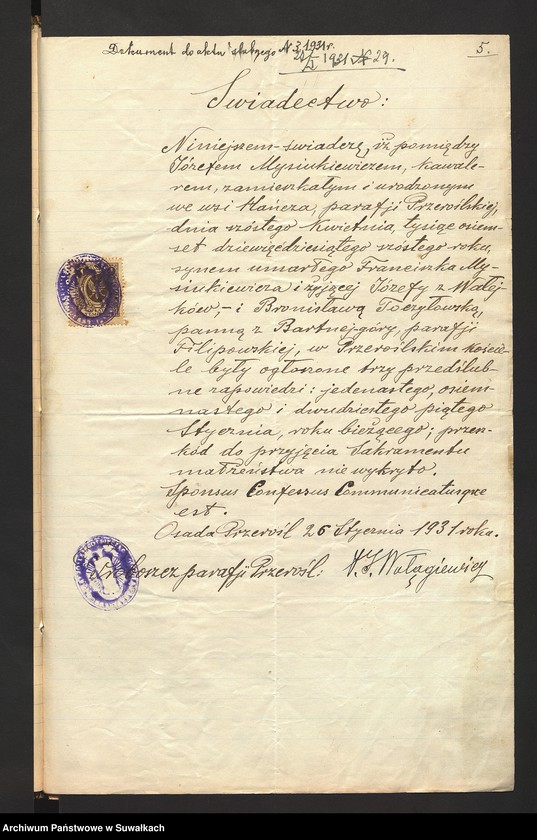 Dokument do aktu ślubnego № 3 1931 r.
5.
1931 № 29.
Świadectwo:
Niniejszem świadczę, iż pomiędzy
Józefem Mysiukiewiczem, kawale-
rem, zamieszkałym i urodzonym
we wsi Hańcza, parafji Przeroślskiej,
dnia szóstego kwietnia, tysiąc osiem-
set dziewięćdziesiątego szóstego roku,
synem umarłego Franciszka My-
siukiewicza i żyjącej Józefy z Walej-
ków, – i Bronisławą Toczyłowską,
panną z Bartnej-góry, parafji
Filipowskiej, w Przeroślskim koście-
le były ogłoszone trzy przedślub-
ne zapowiedzi: jedenastego, osiem-
nastego i dwudziestego piątego
Stycznia, roku bieżącego; przesz-
kód do przyjęcia Sakramentu
małżeństwa nie wykryto.
Sponsus Confessus Communicatusque
est.
Osada Przerośl 26 Stycznia 1931 roku.
Proboszcz parafji Przerośl: K. J. Wołągiewicz
Archiwum Państwowe w Suwałkach